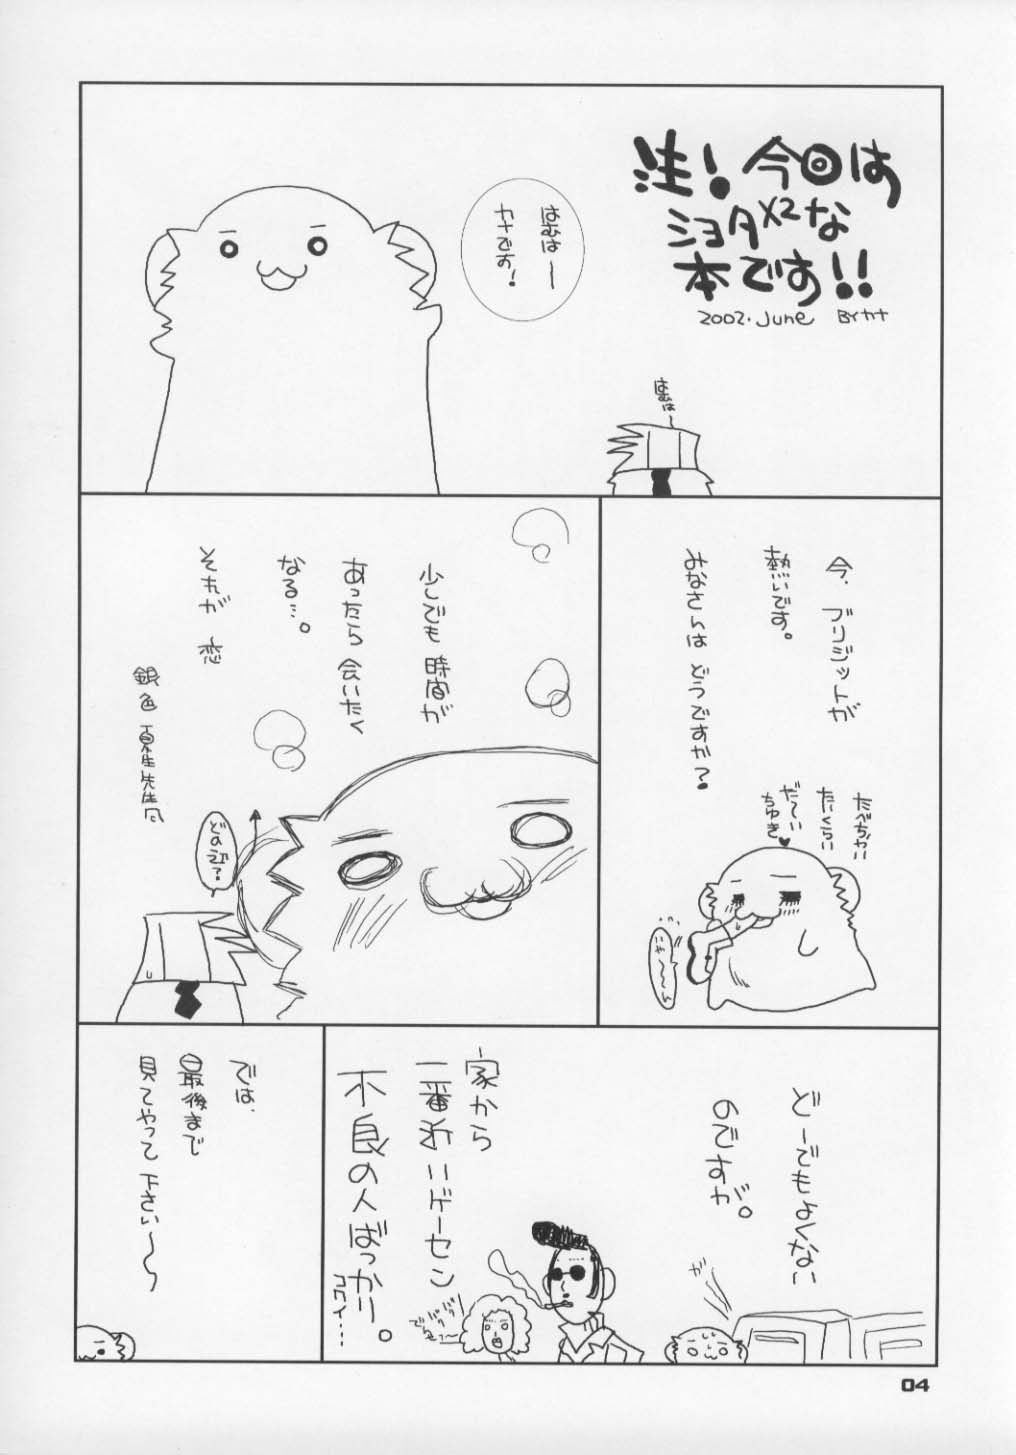 注！今回は
ショタ×2な
本です！！
2002.June BYカナ
はむはー
カナです！
はむはー
今、ブリジットが
熱いです。
みなさんは どうですか？
たべちゃい
たいくらい
だーい
ちゅき♥
いやーん
少しでも 時間が
あったら 会いたく
なる…。
それが 恋
銀色夏生先生風
どの辺？
どーでもよくない
のですが。
家から
一番近いゲーセン
不良の人ばっかり。
コワイ…
が
では、
最後まで
見てやって 下さい～～
04